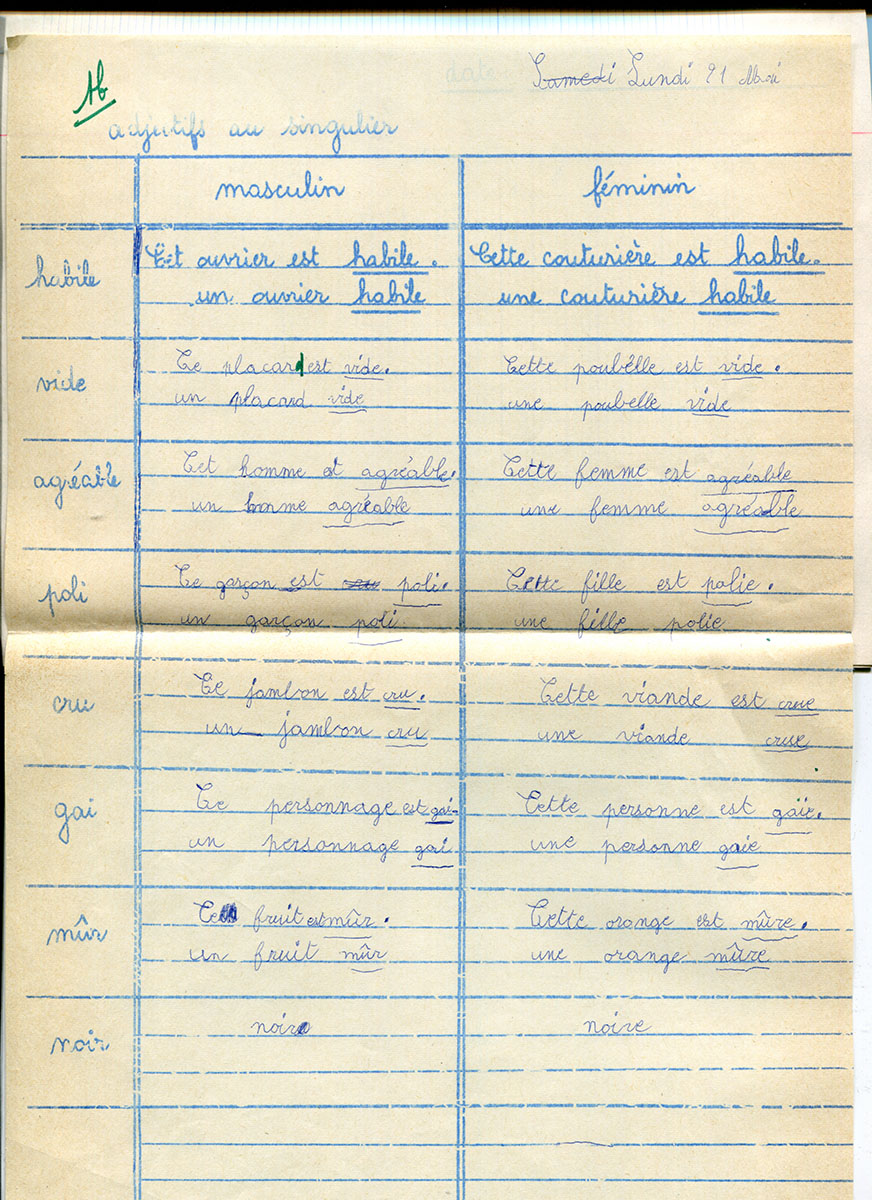 date Samedi Lundi 21 Mai
tb
adjectifs au singulier
masculin féminin
habile Cet ouvrier est habile. Cette couturière est habile.
un ouvrier habile une couturière habile
vide Ce placard est vide. Cette poubelle est vide.
un placard vide une poubelle vide
agréable Cet homme est agréable. Cette femme est agréable
un homme agréable une femme agréable
poli Ce garçon est poli. Cette fille est polie.
un garçon poli. une fille polie
cru Ce jambon est cru. Cette viande est crue
un jambon cru une viande crue
gai Ce personnage est gai. Cette personne est gaie.
un personnage gai une personne gaie
mûr Ce fruit est mûr. Cette orange est mûre.
un fruit mûr une orange mûre
noir noir noire